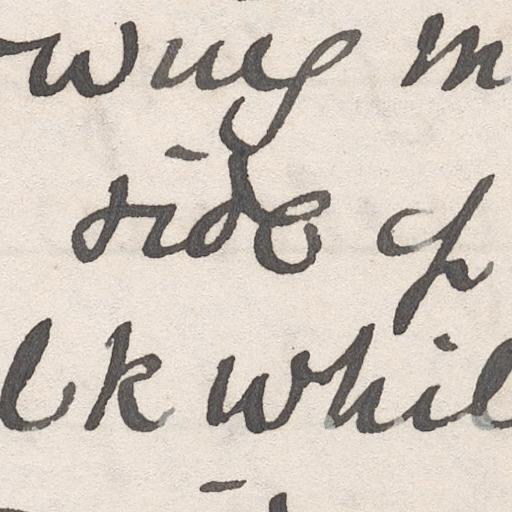 owing m
side of
lk whil